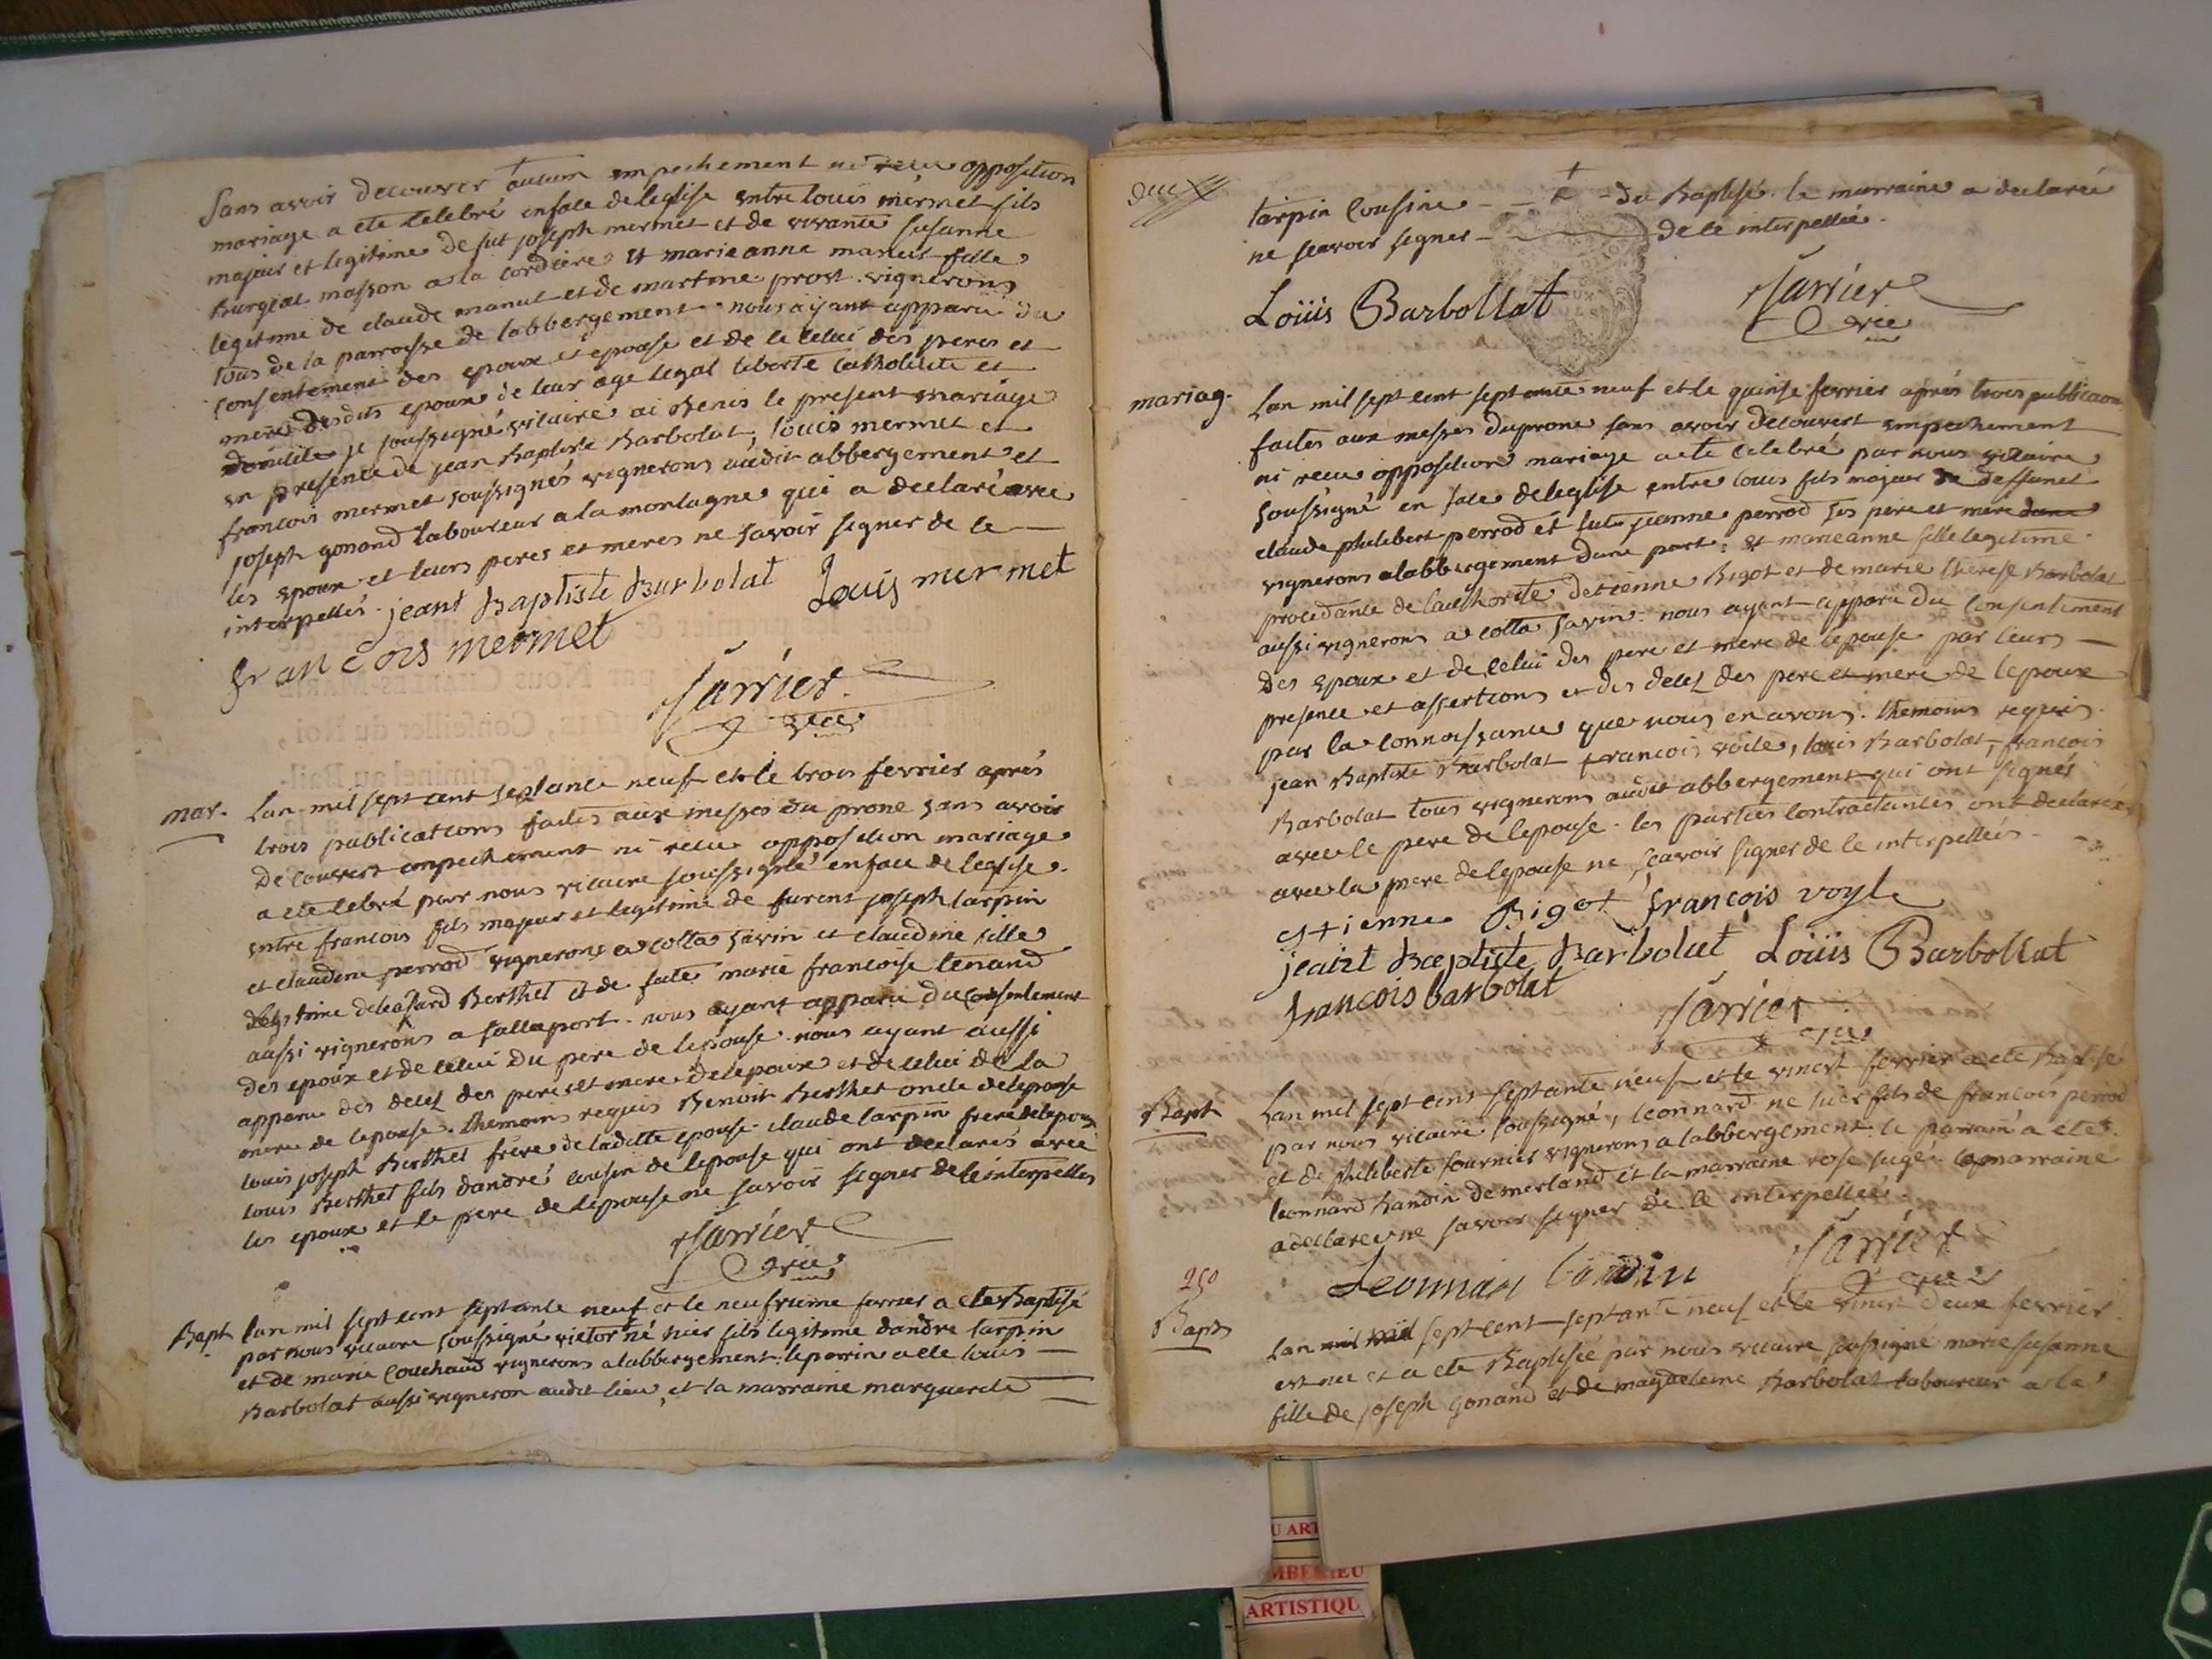 Sans avoir decouvert aucun empechement ni recu opposition
mariage a ete celebré en face de leglise entre louis mermet fils
majeur et legitime de fut joseph mermet et de vivante susanne
Burgeat masson a la cordiere et marieanne manut fille
legitime de claude manut et de martine prost vignerons
tous de la parroisse de labbergement nous ayant apparu du
consentement des epoux et epouse et de le celui des peres et
mere desdits epoux de leur age legal liberté catholicité et
domicile je soussigné vicaire ai Benis le present mariage
en presence de jean Baptiste Barbolat, louis mermet et
francois mermet soussignés vignerons audit abbergement et
joseph gonand laboureur a la montagne qui a declaré avec
les epoux et leurs peres et meres ne savoir signer de ce
interpellés. jeant Baptiste Barbolat Louis mermet
francois mermet
Jarrier
vic
mar. Lan mil sept cent septante neuf et le trois fevrier aprés
trois publications faites aux messes du prone sans avoir
decouvert empechement ni recu opposition mariage
a ete celebré par nous vicaire soussigné en face de leglise
entre francois fils majeur et legitime de furent joseph tarpin
et claudine perrod vignerons a cotta savin et claudine fille
legitime de leasard Berthet et de fute marie francoise tenand
aussi vignerons a sallaport. nous ayant apparu du consentement
des epoux et de celui du pere de lepouse. nous ayant aussi
apparu des decez des pere et mere de lepoux et de celui de la
mere de lepouse. themoins requis Benoit Berthet oncle de lepouse
louis joseph Berthet frere de laditte epouse claude tarpin frere de lepoux
louis Berthet fils dandré cousin de lepouse qui ont declarés avec
les epoux et le pere de lepouse ne savoir signer de le interpelles
Jarrier
vic
Bapt Lan mil sept cent septante neuf et le neufvieme fevrier a ete Baptisé
par nous vicaire soussigné victor né hier fils legitime dandre tarpin
et de marie couchaud vignerons a labbergement: le parrin a ete louis
Barbolat aussi vigneron audit lieu, et la marraine marguerite
tarpin cousine du Baptisé. la marraine a declarée
ne scavoir signer de le interpellée.
Loüis Barbollat Jarrier
vic
mariag. Lan mil sept cent septante neuf et le quinse fevrier aprés trois publications
faites aux messes du prone sans avoir decouvert empechement
ni recu opposition mariage a ete celebré par nous vicaire
soussigné en face de leglise entre louis fils majeur de deffunct
claude philibert perrod et fute jeanne perrod ses pere et mere
vignerons a labbergement dune part: et marieanne fille legitime
procedante de lauthorité detienne Bigot et de marie therese Barbolat
aussi vignerons a cotta savin: nous ayant apparu du consentement
des epoux et de celui des pere et mere de lepouse par leurs
presence et assertions et des decez des pere et mere de lepoux
par la connoissance que nous en avons. themoins requis
jean Baptiste Barbolat francois voile, louis Barbolat, francois
Barbolat tous vignerons audit abbergement qui ont signés
avec le pere de lepouse. les parties contractantes ont declarées
avec la mere de lepouse ne scavoir signer de le interpellées.
estienne Bigot françois voyle
jeant Baptiste Barbolat Loüis Barbollat
francois barbolat
Jarrier
vic
Bapt Lan mil sept cent septante neuf et le vinct fevrier a ete Baptisé
par nous vicaire soussigné, leonnard ne hier fils de francois perrod
et de philiberte fournier vignerons a labbergement. le parrain a ete
leonnard Bandin de merland et la marraine rose suge. la marraine
a declaree ne savoir signer de le interpellée.
Leonnard Bandin Jarrier
vic
250
Bapt Lan mil sept cent septante neuf et le vinct deux fevrier
est nee et a ete Baptisée par nous vicaire soussigné marie susanne
fille de joseph gonand et de magdeleine Barbolat laboureur a la
U ART
MBERIEU
ARTISTIQU